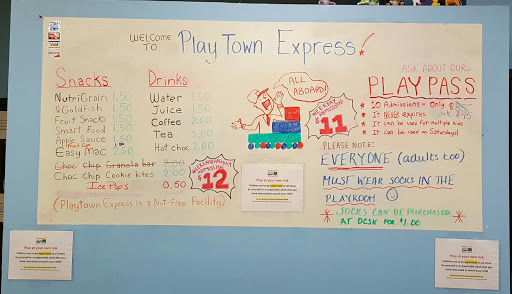 WELCOME TO Play Town Express!
Snacks
NutriGrain 1.50
Goldfish 1.50
Fruit Snacks 1.50
Smart Food 1.50
Apple Sauce 1.50
Easy Mac 2.50
Choc Chip Granola bar 2.00
Choc Chip Cookie bites 2.00
Ice Pops 0.50
(Playtown Express is a Nut-Free Facility)
Drinks
Water 1.50
Juice 1.50
Coffee 2.00
Tea 2.00
Hot choc. 2.00
ALL ABOARD!
WEEKDAY ADMISSION
$11
ADMISSION
$12
Play at your own risk
ASK ABOUT OURS
PLAY PASS
* 10 Admissions - Only
* It NEVER expires
* It can be used for multiple kids
* It can be used on Saturdays!
PLEASE NOTE:
EVERYONE (adults too)
MUST WEAR SOCKS IN THE
PLAYROOM
* SOCKS CAN BE PURCHASED *
AT DESK FOR $1.00
Play at your own risk
Play at your own risk